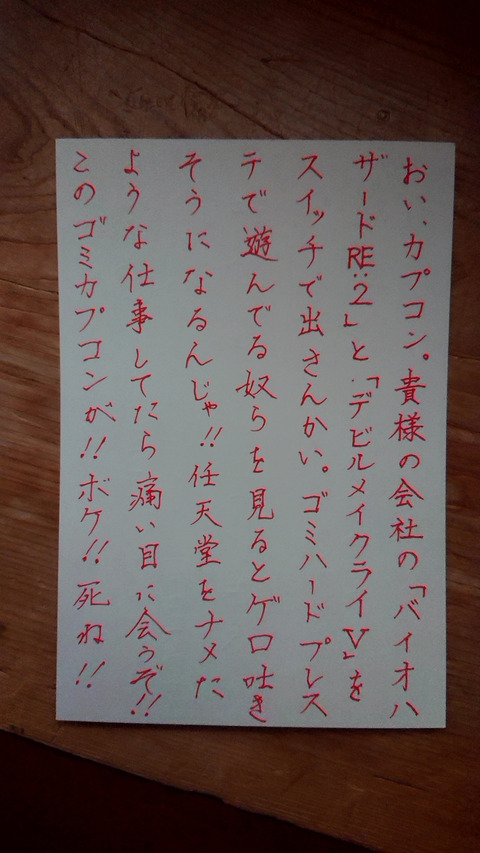 おい、カプコン。貴様の会社の「バイオハ
ザードRE:2」と「デビルメイクライV」を
スイッチで出さんかい。ゴミハードプレス
テで遊んでる奴らを見るとゲロ吐き
そうになるんじゃ!!任天堂をナメた
ような仕事してたら痛い目に会うぞ!!
このゴミカプコンが!!ボケ!!死ね!!